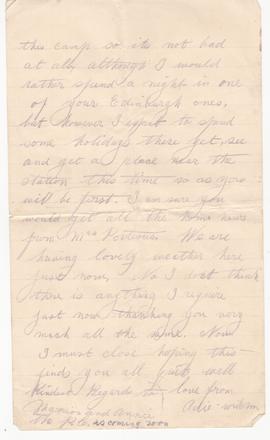 this camp so its not bad
at all, although I would
rather spend a night in one
of your Edinburgh ones,
but however I expect to spend
some holidays there yet, see
and get a place near the
station this time so as yours
will be first. I am sure you
would get all the home news
from Mrs We are
having lovely weather here
just now. No I dont think
there is anything I require
just now thanking you very
much all the same. Now
I must close hoping this
finds you all quite well
Kindest Regards to love from
and Annie
the P.C. as coming soon